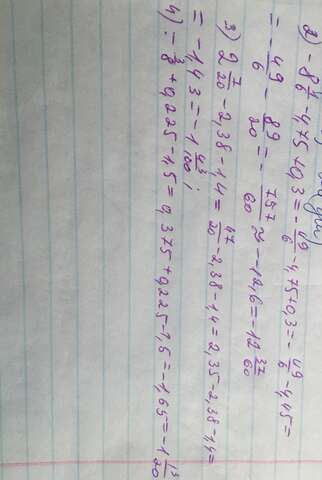 2) -8 1/6 - 4,75 + 0,3 = - 49/6 - 4,75 + 0,3 = - 49/6 - 4,45 =
= - 49/6 - 89/20 = - 757/60 ≈ -12,6 = -12 37/60
3) 2 7/20 - 2,38 - 1,4 = 47/20 - 2,38 - 1,4 = 2,35 - 2,38 - 1,4 =
= -1,43 = -1 43/100;
4) : - 3/8 + 0,225 - 1,5 = 0,375 + 0,225 - 1,5 = -1,65 = -1 13/20